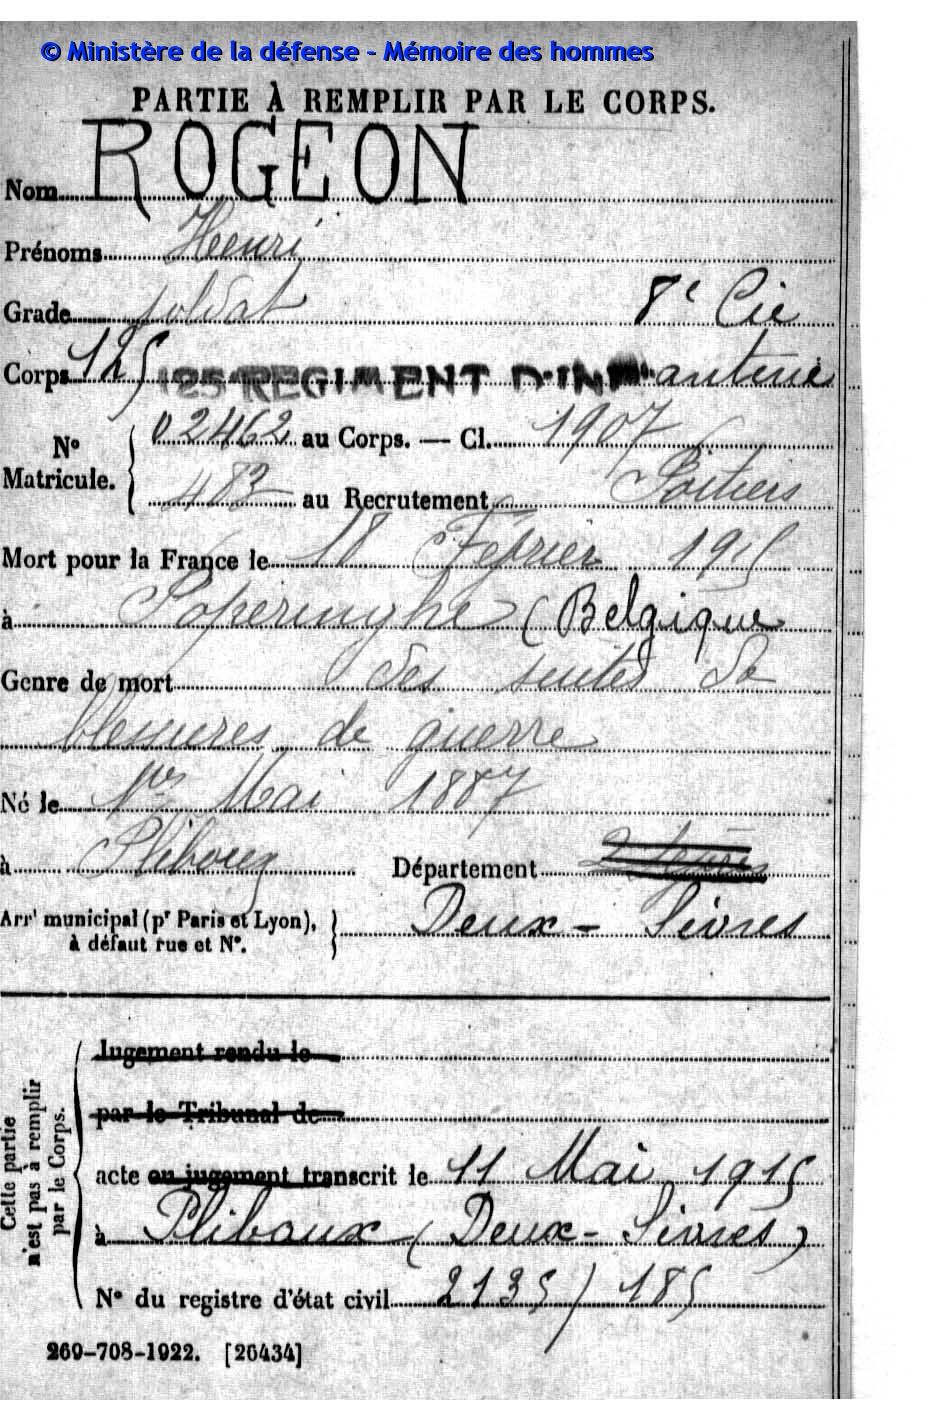 © Ministère de la défense - Mémoire des hommes
PARTIE À REMPLIR PAR LE CORPS.
Nom ROGEON
Prénoms Henri
Grade soldat 8e Cie
Corps 125 125e REGIMENT D'INFanterie
N° Matricule. 02462 au Corps. — Cl. 1907
483 au Recrutement Poitiers
Mort pour la France le 18 Février 1915
à Poperinghe (Belgique
Genre de mort des suites de
blessures de guerre
Né le 1er Mai 1887
à Pliboux Département 2 Sèvres
Arrt municipal (pr Paris et Lyon), à défaut rue et N°. Deux-Sèvres
Cette partie n'est pas à remplir par le Corps.
Jugement rendu le
par le Tribunal de
acte ou jugement transcrit le 11 Mai 1915
à Pliboux (Deux-Sèvres)
N° du registre d'état civil 2135/185
269-708-1922. [26434]